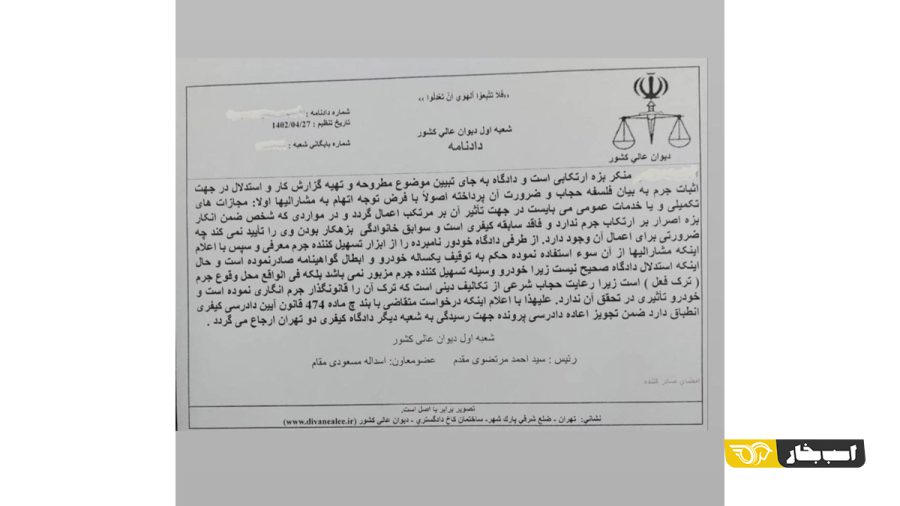 «فَلاَ تَتَّبِعُوا الْهَوَى أَنْ تَعْدِلُوا»
شماره دادنامه :
تاریخ تنظیم : 1402/04/27
شماره بایگانی شعبه :
شعبه اول دیوان عالی کشور
دادنامه
دیوان عالی کشور
منکر بزه ارتکابی است و دادگاه به جای تبیین موضوع مطروحه و تهیه گزارش کار و استدلال در جهت
اثبات جرم به بیان فلسفه حجاب و ضرورت آن پرداخته اصولاً با فرض توجه اتهام به مشارالیها اولا: مجازات های
تکمیلی و یا خدمات عمومی می بایست در جهت تأثیر آن بر مرتکب اعمال گردد و در مواردی که شخص ضمن انکار
بزه اصرار بر ارتکاب جرم ندارد و فاقد سابقه کیفری است و سوابق خانوادگی بزهکار بودن وی را تأیید نمی کند چه
ضرورتی برای اعمال آن وجود دارد. از طرفی دادگاه خودور نامبرده را از ابزار تسهیل کننده جرم معرفی و سپس با اعلام
اینکه مشارالیها از آن سوء استفاده نموده حکم به توقیف یکساله خودرو و ابطال گواهینامه صادرنموده است و حال
اینکه استدلال دادگاه صحیح نیست زیرا خودرو وسیله تسهیل کننده جرم مزبور نمی باشد بلکه فی الواقع محل وقوع جرم
( ترک فعل ) است زیرا رعایت حجاب شرعی از تکالیف دینی است که ترک آن را قانونگذار جرم انگاری نموده است و
خودرو تأثیری در تحقق آن ندارد. علیهذا با اعلام اینکه درخواست متقاضی با بند چ ماده 474 قانون آیین دادرسی کیفری
انطباق دارد ضمن تجویز اعاده دادرسی پرونده جهت رسیدگی به شعبه دیگر دادگاه کیفری دو تهران ارجاع می گردد .
شعبه اول دیوان عالی کشور
رئیس : سید احمد مرتضوی مقدم عضومعاون: اسداله مسعودی مقام
امضای صادر کننده
تصویر برابر با اصل است.
نشانی: تهران - ضلع شرقی پارک شهر- ساختمان کاخ دادگستری - دیوان عالی کشور (www.divanealee.ir)
اسب بخار